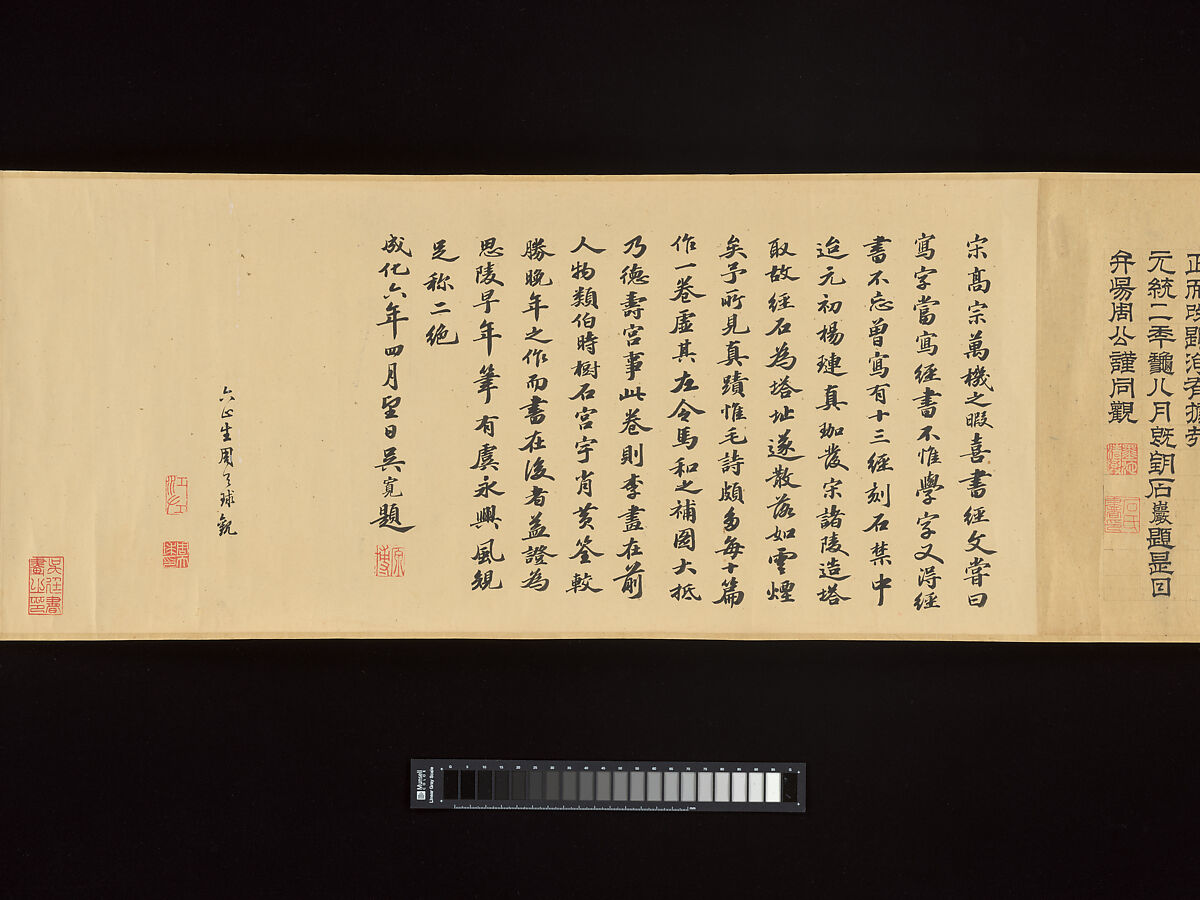 元統二年龝八月旣朔石巖題是日
弁陽周公謹同觀
宋高宗萬機之暇喜書經文嘗曰
寫字當寫經書不惟學字又淂經
書不忘曾寫有十三經刻石禁中
迨元初楊璉真珈發宋諸陵造塔
取故經石為塔址遂散落如雲煙
矣予所見真蹟惟毛詩頗多每十篇
作一卷虛其左令馬和之補圖大抵
乃德壽宮事此卷則李畫在前
人物類伯時樹石宮宇肖黃筌較
勝晚年之作而書在後者益證為
思陵早年筆有虞永興風規
足称二絶
成化六年四月望日吳寬題
原博
六止生周天球觀
江左
Munsell
COLOR
Linear Gray Scale